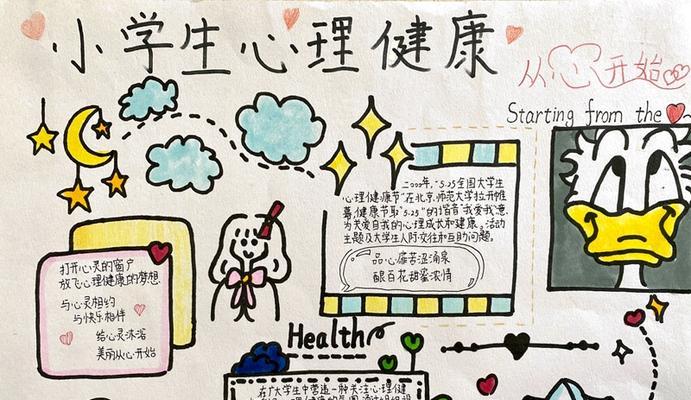 小学生心理健康
从心开始
Starting from the
2000年,"5.25全国大学生
心理健康节"在北京师范大学拉开帷
幕,健康节取"5.25"的谐音"我爱我"意
为关爱自我的心理成长和健康。活动
主题及大学生人际交往和互助问题。
品心痛苦涩涌泉
酿百花甜蜜浓情
打开心灵的窗户
放飞心理健康的梦想
与心灵相约
与快乐相伴
给心灵沐浴
美丽从心开始
Health
在广大学生中营造一种关注心理健